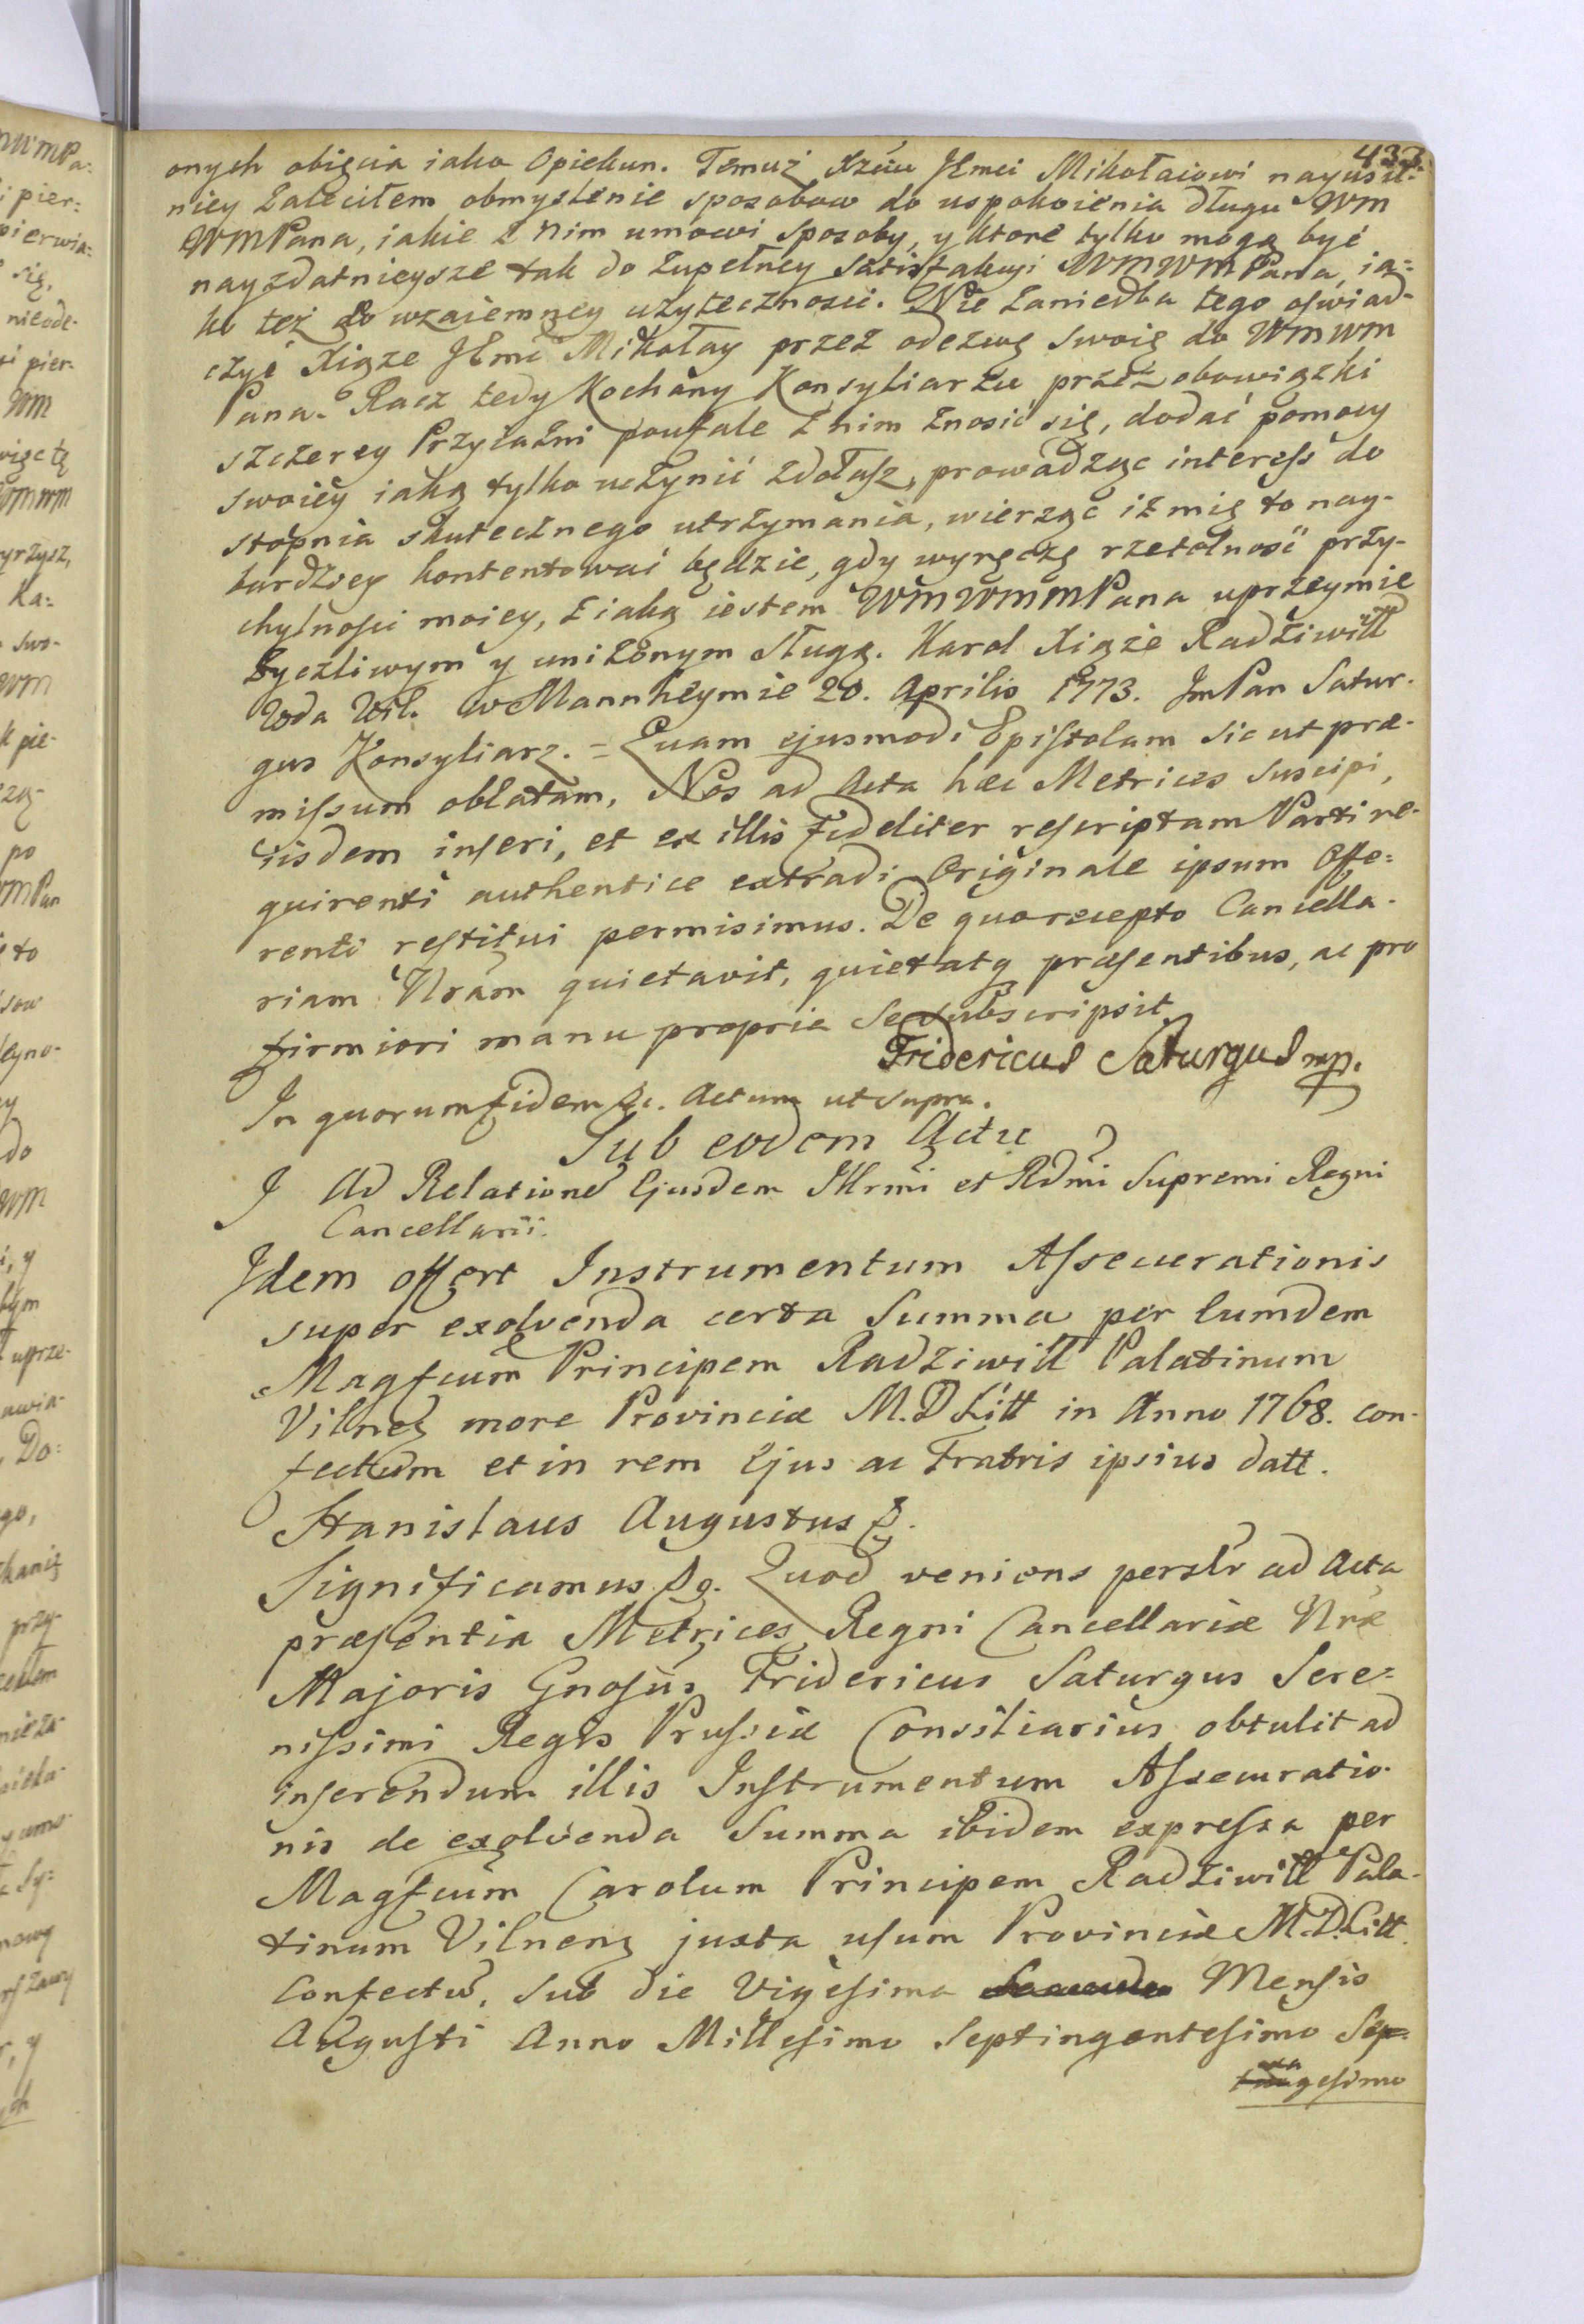 433.
onych obięcia iako Opiekun. Temuż Xżciu Jmci Mikołaiowi nayusil-
niey zaleciłem obmyslenie sposobow do uspokoienia długu WM
WMPana, iakie z nim umowi sposoby, y ktore tylko mogą być
nayzdatnieysze tak do zupełney satisfakcyi WMWMPana, ia=
ko też do wzaiemney użytecznosci. Nie zaniedba tego oswiad-
czyć Xiąze Jmć Mikołay przez odezwę swoię do WMWM
Pana. Racz tedy Kochany Konsyliarzu przez obowiązki
szczerey Przyiaźni poufale z nim znosić się, dodać pomocy
swoiey iaką tylko uczynić zdołasz, prowadząc interess do
stopnia skutecznego utrzymania, wierząc iż mię to nay-
bardziey kontentować będzie, gdy wyręczę rzetelność przy-
chylnosci moiey, z iaką iestem WMWMMPana uprzeymie
życzliwym y uniżonym sługą. Karol Xiąże Radziwiłł
Wda Wil. w Mannheymie 20. Aprilis 1773. JmPan Satur-
gus Konsyliarz. = Quam ejusmodi Epistolam sic ut præ-
missum oblatam, Nos ad Acta hæc Metrices suscipi,
iisdem inseri, et ex illis fideliter rescriptam Parti re-
quirenti authentice extradi Originale ipsum Offe=
renti restitui permisimus. De quo recepto Cancella-
riam Nram quietavit, quietatq præsentibus, ac pro
firmiori manu propria se subscripsit.
Fridericus Saturgus mp.
In quorum fidem &c. Actum ut supra.
Sub eodem Actu
J Ad Relationē Ejusdem Illrmi et Rdmi Supremi Regni
Cancellarii.
Idem offert Instrumentum Assecurationis
super exolvenda certa Summa per Eumdem
Magfcum Principem Radziwiłł Palatinum
Vilneń more Provinciæ M. D Litt in Anno 1768. con-
fectum et in rem Ejus ac Fratris ipsius datt.
Stanislaus Augustus &.
Significamus &c. Quod veniens persolr ad Acta
præsentia Metrices Regni Cancellariæ Nræ
Majoris Gnosus Fridericus Saturgus Sere=
nissimi Regis Prussiæ Consiliarius obtulit ad
inserendum illis Instrumentum Assecuratio-
nis de exolvenda Summa ibidem expressa per
Magfcum Carolum Principem Radziwiłł Pala-
tinum Vilnens juxta usum Provinciæ M.D.Litt.
Confectū, sub die Vigesima Secunda Mensis
Augusti Anno Millesimo Septingentesimo Sep-
gesimo